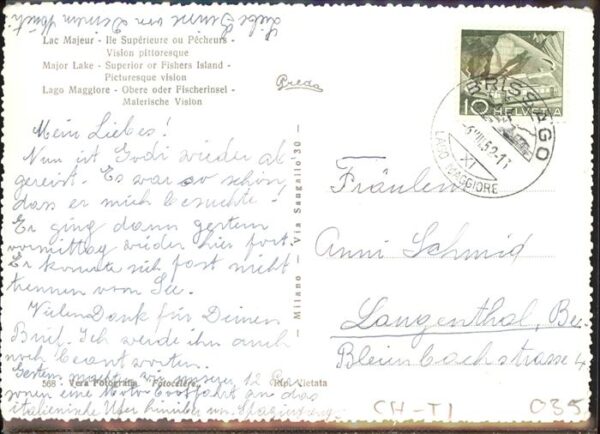 Liebe Grüsse von Deiner
Lac Majeur - Ile Supérieure ou Pêcheurs -
Vision pittoresque
Major Lake - Superior or Fishers Island -
Picturesque vision
Lago Maggiore - Obere oder Fischerinsel -
Malerische Vision
Preda
Mein Liebes!
Nun ist Godi wieder ab-
gereist. Es war so schön,
dass er mich besuchte!
Er ging dann gestern
vormittag wieder hier fort.
Er konnte sich fast nicht
trennen vom See.
Vielen Dank für Deinen
Brief. Ich werde ihn auch
noch beantworten.
568 - Vera Fotografia - "Fotocelere" Ripr. Vietata
Gestern machten wir 12 Per-
sonen eine Motorbootfahrt an das
italienische Ufer hinüber
— Milano — Via Sangallo 30 —
10 HELVETIA
BRISSAGO
LAGO MAGGIORE
XI
Fräulein
Anni Schmid
Langenthal, Be.
Bleienbachstrasse 4
CH-TI 035